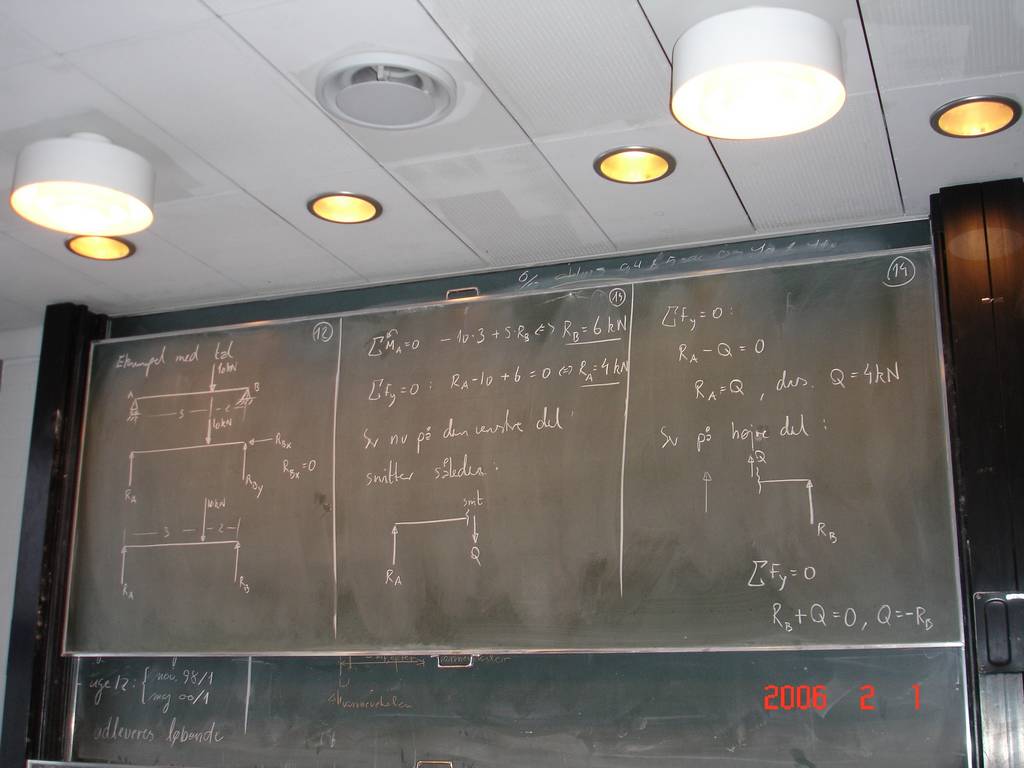 12
Eksempel med tal
10 kN
A B
3 2
10 kN
R_Bx
R_Bx = 0
R_A R_By
10 kN
3 2
R_A R_B
13
∑M_A=0 -10·3 + 5·R_B ⇔ R_B = 6 kN
∑F_y=0 : R_A-10+6 = 0 ⇔ R_A = 4 kN
Se nu på den venstre del
snittet således:
snit
R_A Q
14
∑F_y=0 :
R_A - Q = 0
R_A = Q , dvs. Q = 4 kN
Se på højre del :
Q
R_B
∑F_y=0
R_B+Q=0, Q=-R_B
uge 12: { nov. 98/1
maj 00/1
varmekilden
afleveres løbende
2006 2 1